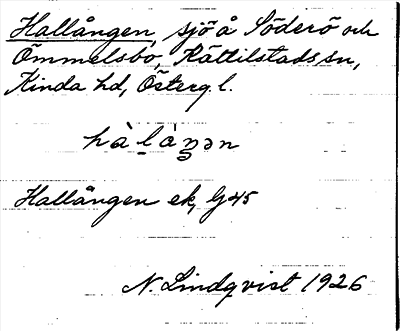 Hallången, sjö å Söderö och
Ömmelsbo, Rättilstads sn,
Kinda hd, Österg. l.
hàlàŋən
Hallången ek, G 45
N. Lindqvist 1926